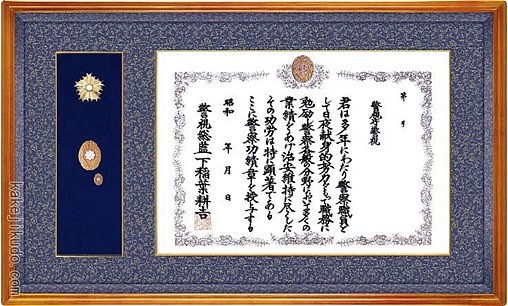 第 号
警視庁警視
君は多年にわたり警察職員と
して日夜献身的努力をもって職務に
勉励し警察各般の分野において多くの
業績をあげ治安維持に尽くした
その功労は特に顕著である
ここに警察功績章を授与する
昭和 年 月 日
警視総監 下稲葉耕吉
kakejikudo.com